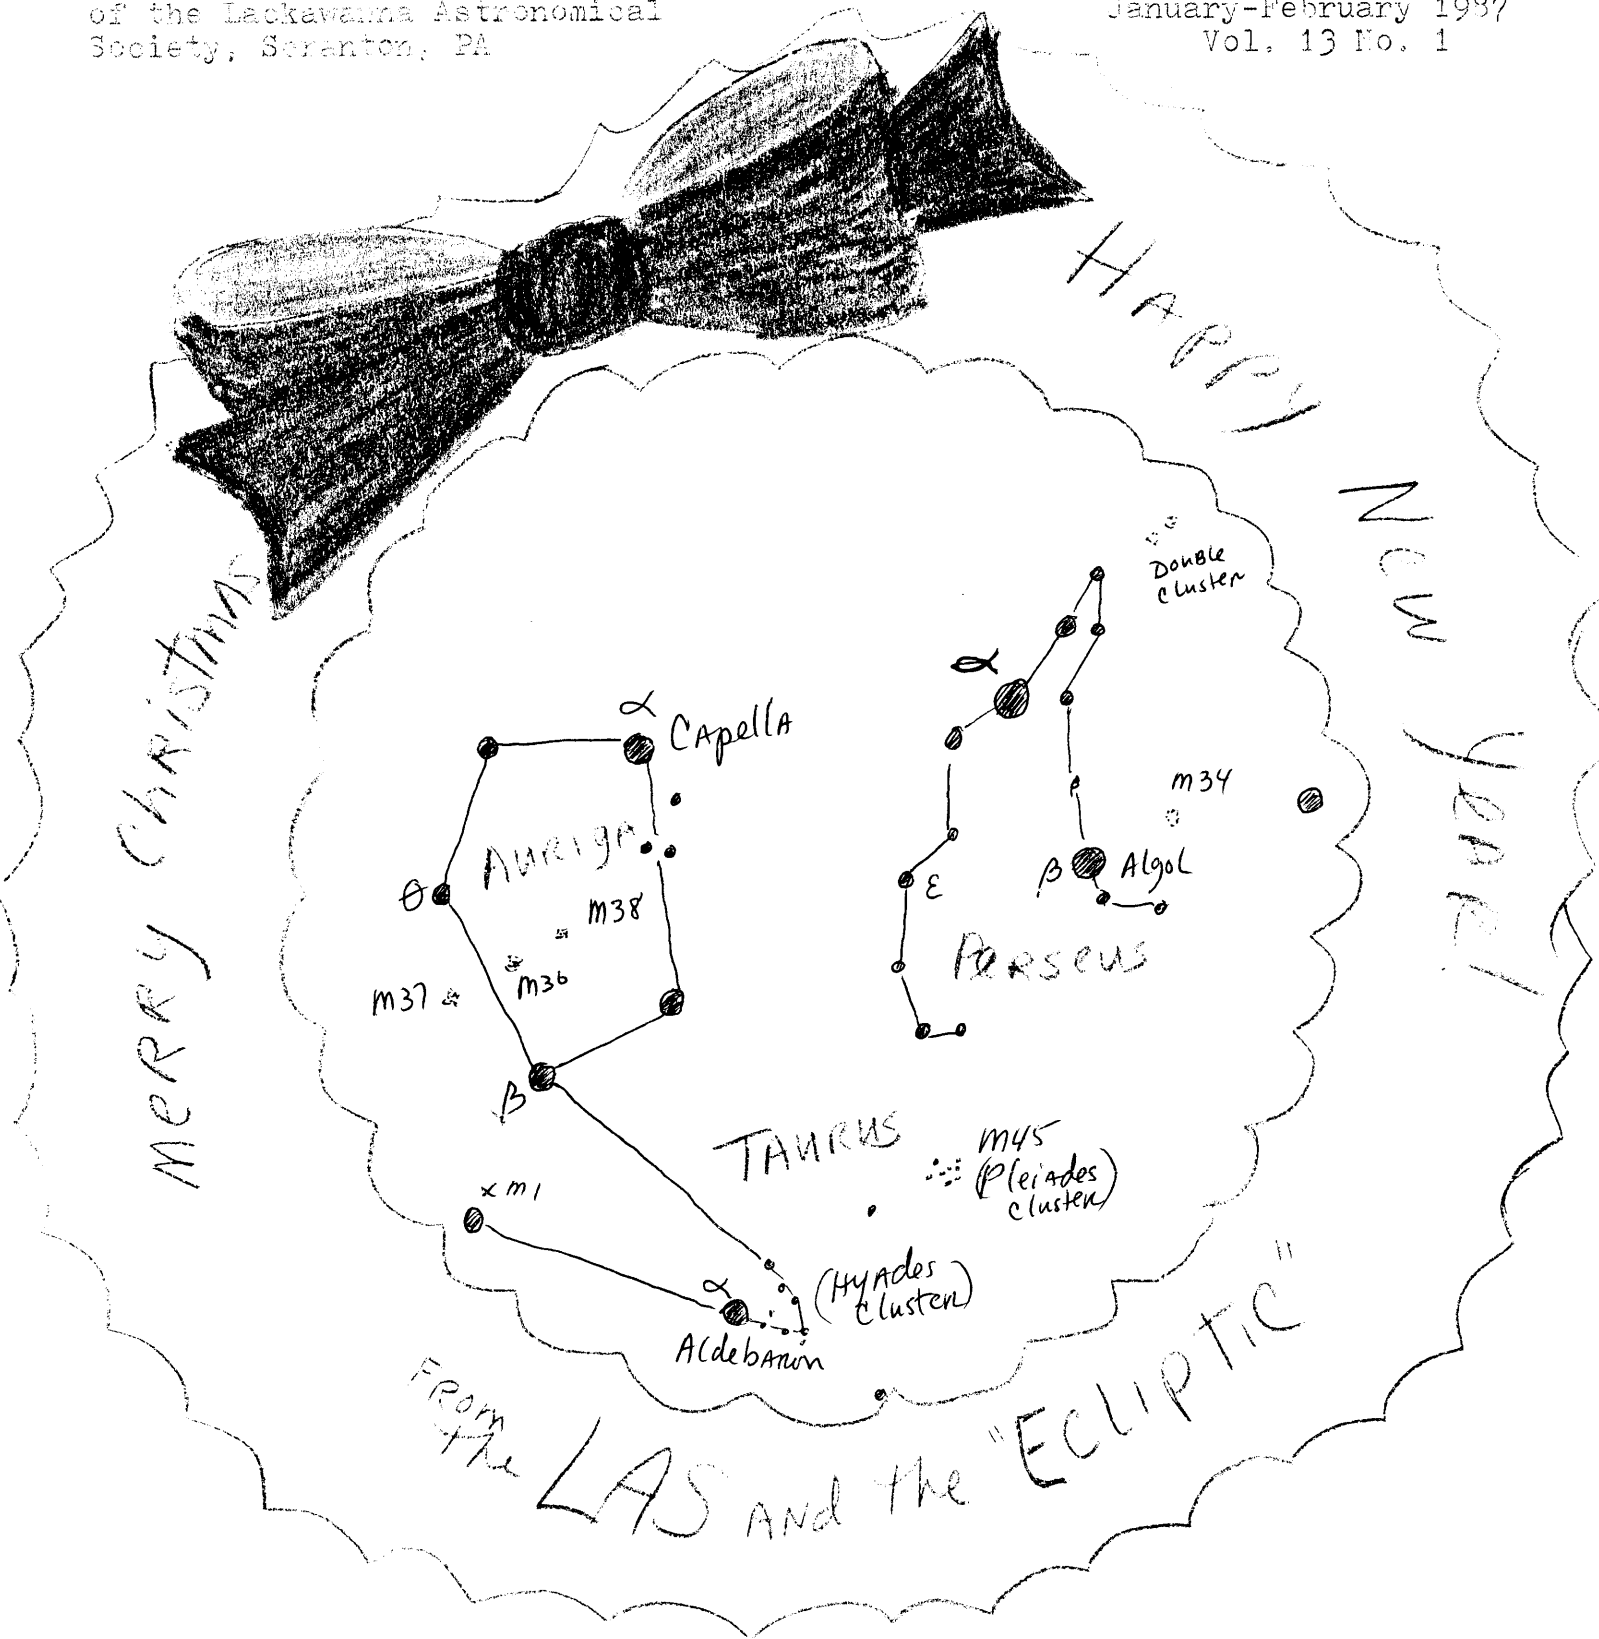 of the Lackawanna Astronomical
Society, Scranton, PA
January-February 1987
Vol. 13 No. 1
Merry Christmas
Happy New Year!
Double
Cluster
α
α
Capella
Auriga
θ
M38
M36
M37
β
M34
β Algol
ε
Perseus
Taurus
M45
(Pleiades
Cluster)
x M1
α
Aldebaron
(Hyades
Cluster)
From
the LAS and the "Ecliptic"